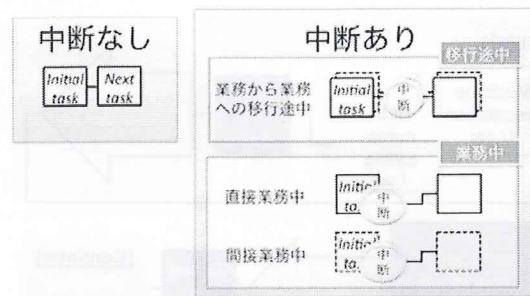 中断なし
Initial
task
Next
task
中断あり
移行途中
業務から業務
への移行途中
Initial
task
中
断
業務中
直接業務中
Initial
ta
中
断
間接業務中
Initial
ta
中
断